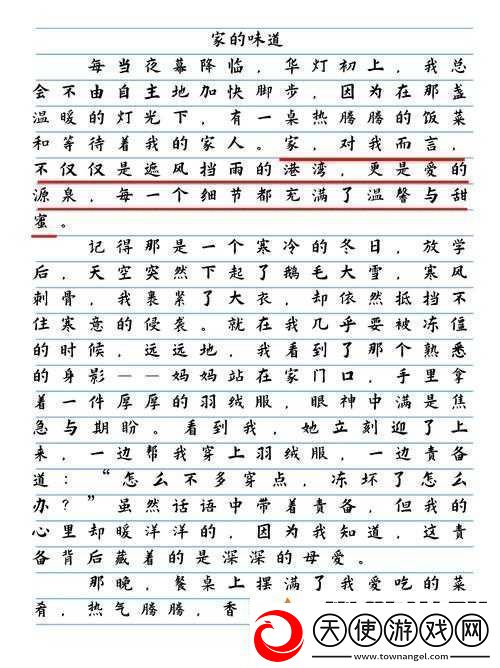 家的味道
每当夜幕降临，华灯初上，我总
会不由自主地加快脚步，因为在那盏
温暖的灯光下，有一桌热腾腾的饭菜
和等待着我的家人。家，对我而言，
不仅仅是遮风挡雨的港湾，更是爱的
源泉，每一个细节都充满了温馨与甜
蜜。
记得那是一个寒冷的冬日，放学
后，天空突然下起了鹅毛大雪，寒风
刺骨，我裹紧了大衣，却依然抵挡不
住寒意的侵袭。就在我几乎要被冻僵
的时候，远远地，我看到了那个熟悉
的身影——妈妈站在家门口，手里拿
着一件厚厚的羽绒服，眼神中满是焦
急与期盼。看到我，她立刻迎了上
来，一边帮我穿上羽绒服，一边责备
道：“怎么不多穿点，冻坏了怎么
办？”虽然话语中带着责备，但我的
心里却暖洋洋的，因为我知道，这责
备背后藏着的是深深的母爱。
那晚，餐桌上摆满了我爱吃的菜
肴，热气腾腾，香
天使游戏网
www.townangel.com